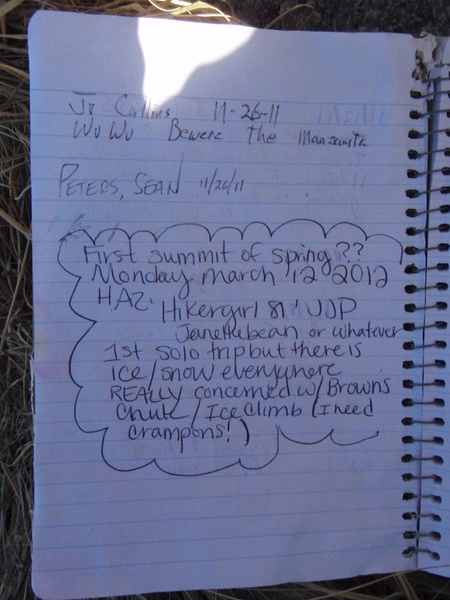 Jv Collins 11-26-11
Wu Wu Bewere The Manzanita
PETERS, SEAN 11/26/11
First summit of spring??
Monday march 12 2012
HAZ.
Hikergirl 81
Janettebean or whatever
1st solo trip but there is
ice/snow everywhere
REALLY concerned w/ Browns
Chute/Ice Climb (I need
crampons!)